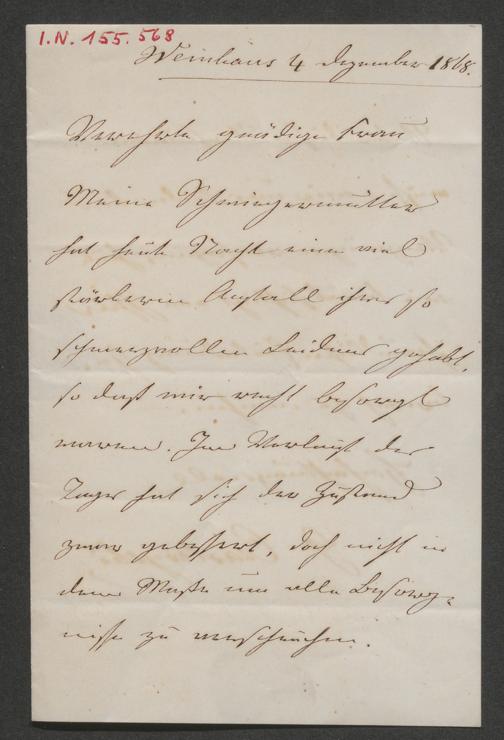 I.N. 155.568
Weinhaus 4 Dezember 1868.
Verehrte gnädige Frau
Meine Schwiegermutter
hat heute Nacht einen viel
stärkeren Anfall ihres so
schmerzvollen Leidens gehabt,
so daß wir recht besorgt
waren. Im Verlauf des
Tages hat sich der Zustand
zwar gebessert, doch nicht in
dem Maße um alle Besorg-
nisse zu verscheuchen.